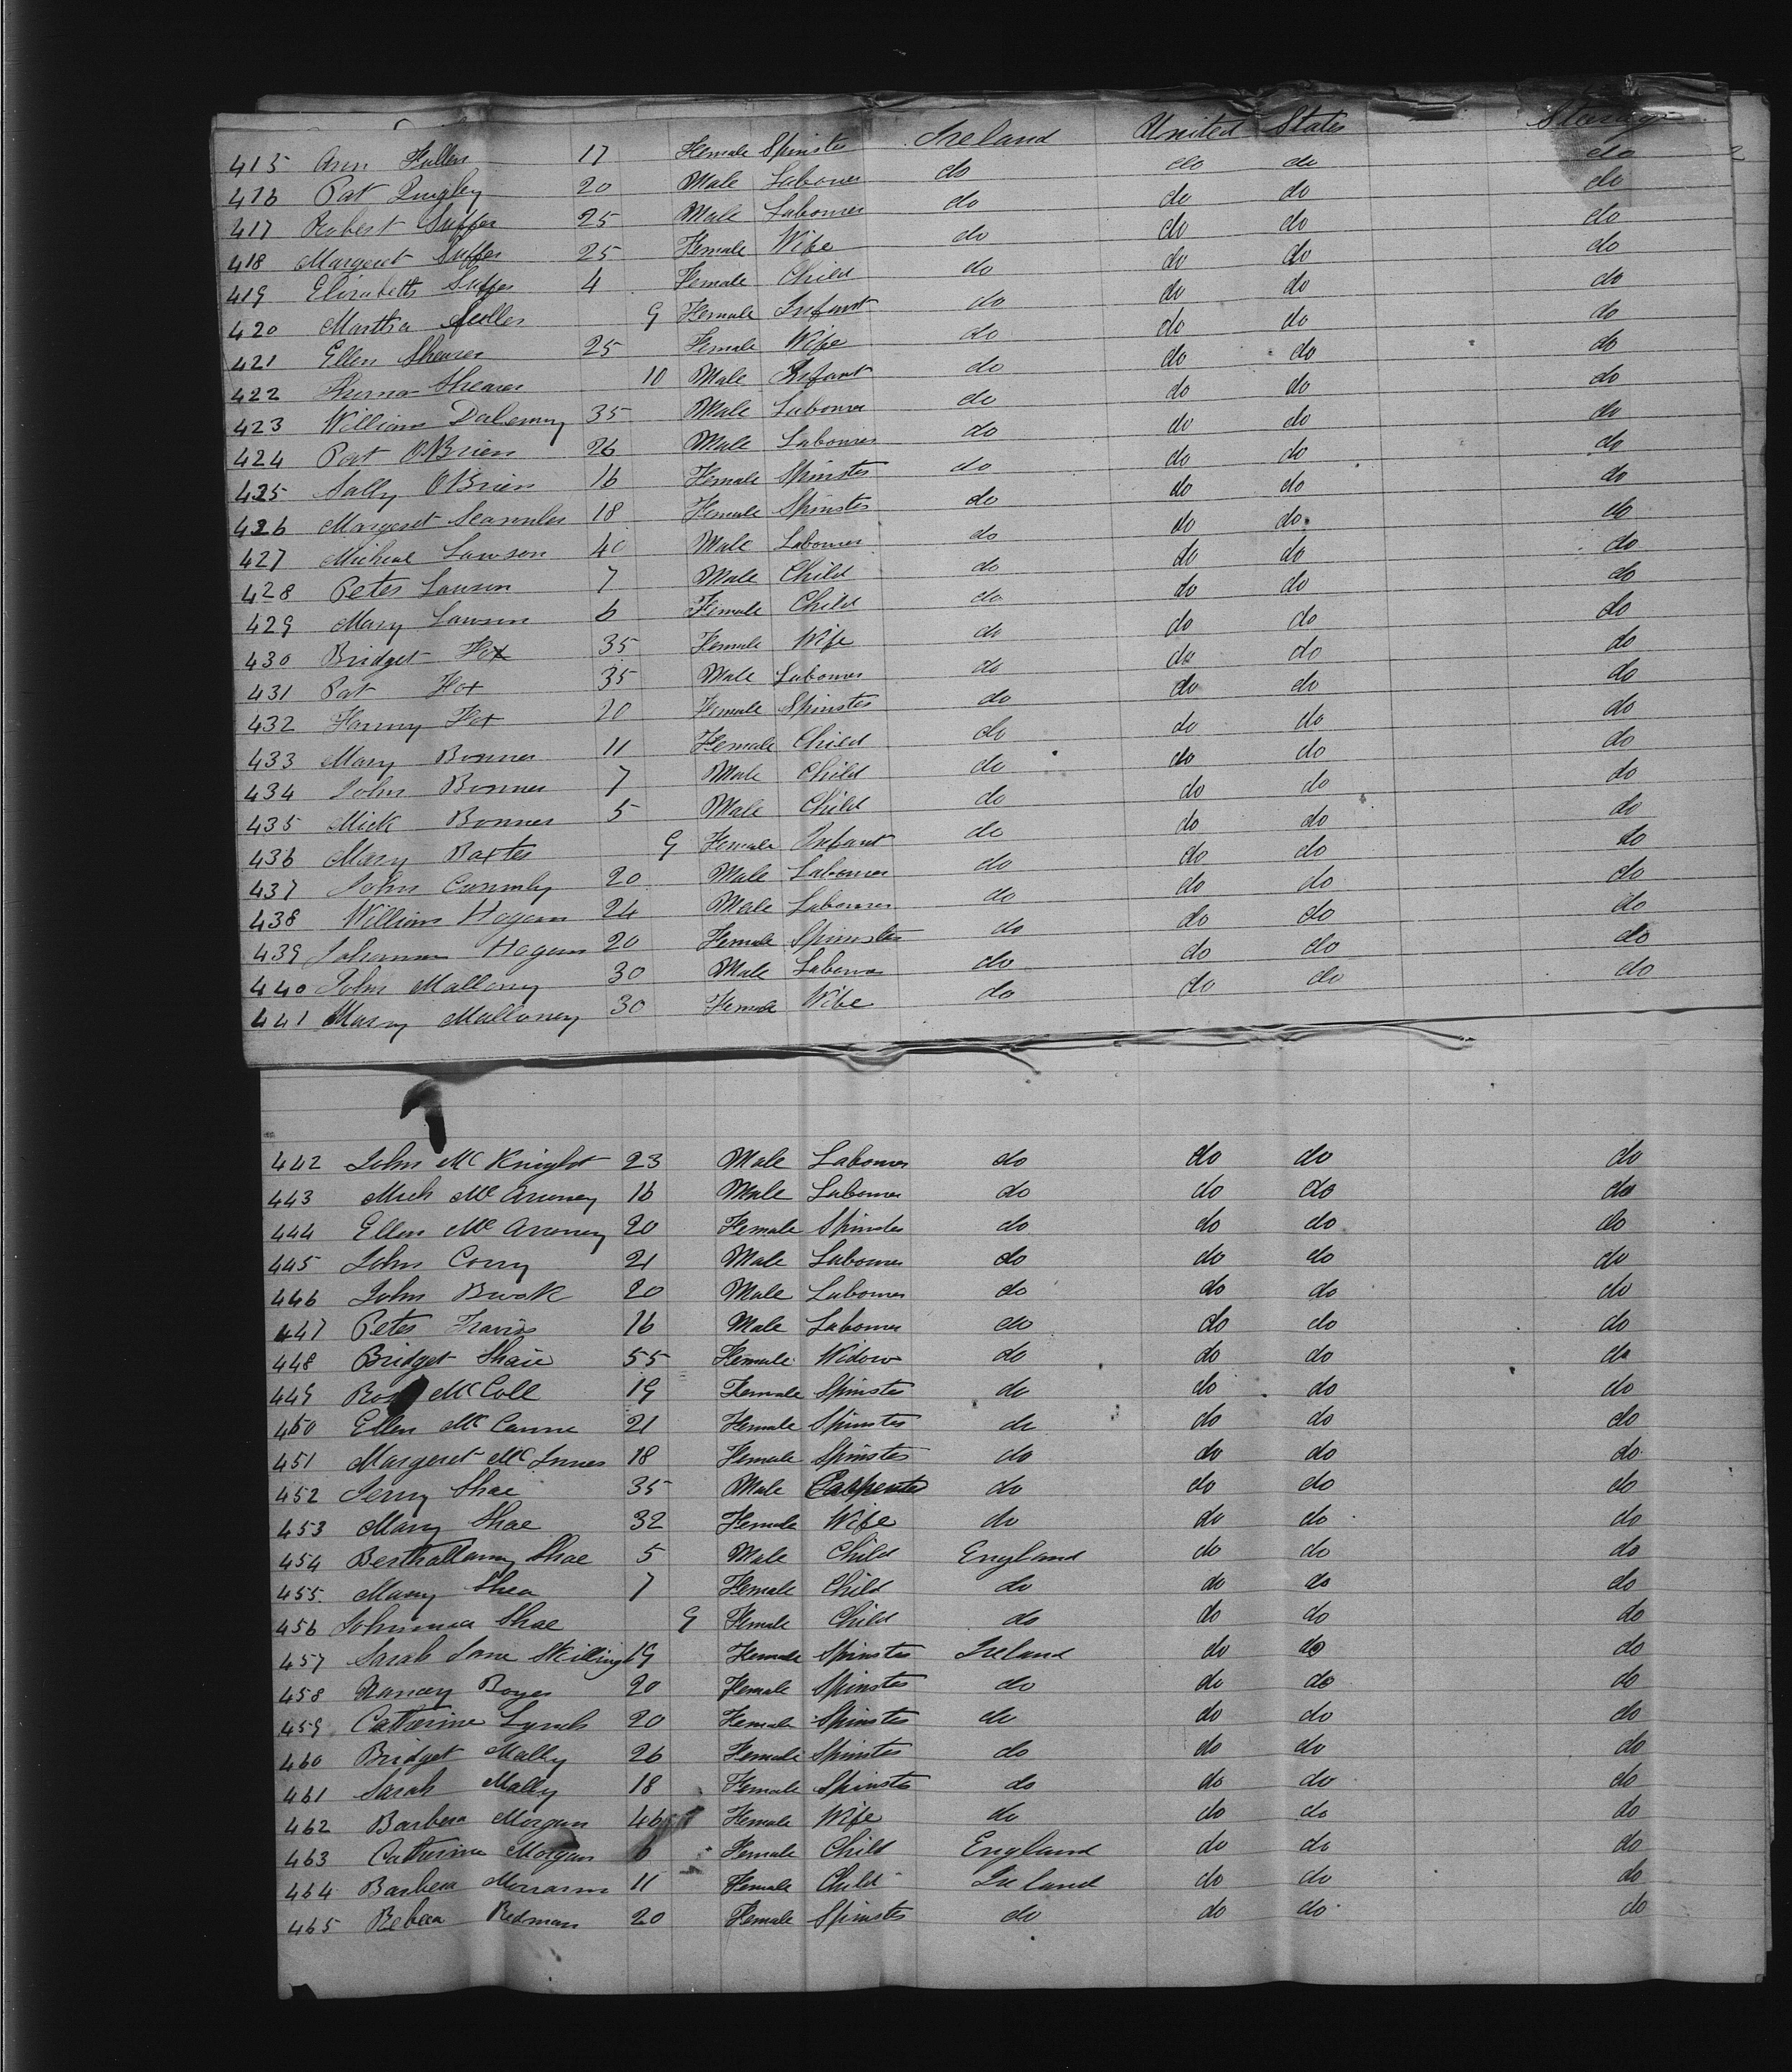 415 Ann Fullen 17 Female Spinster Ireland United States Steerage
416 Pat Quigley 20 Male Labourer do do do do
417 Robert Suffer 25 Male Labourer do do do do
418 Margeret Suffer 25 Female Wife do do do do
419 Elizabeth Suffer 4 Female Child do do do do
420 Martha 9 Female Infant do do do do
421 Ellen Shearer 25 Female Wife do do do do
422 Shearer 10 Male Infant do do do do
423 William 35 Male Labourer do do do do
424 Pat OBrien 26 Male Labourer do do do do
425 Sally OBrien 16 Female Spinster do do do do
426 Margeret 18 Female Spinster do do do do
427 Micheal Lawson 40 Male Labourer do do do do
428 Peter Lawson 7 Male Child do do do do
429 Mary Lawson 6 Female Child do do do do
430 Bridget Fox 35 Female Wife do do do do
431 Pat Fox 35 Male Labourer do do do do
432 Fanny Fox 20 Female Spinster do do do do
433 Mary Bonner 11 Female Child do do do do
434 John Bonner 7 Male Child do do do do
435 Mick Bonner 5 Male Child do do do do
436 Mary Baxter 9 Female Infant do do do do
437 John 20 Male Labourer do do do do
438 William Hogan 24 Male Labourer do do do do
439 Johannan Hogan 20 Female Spinster do do do do
440 John Mallony 30 Male Labourer do do do do
441 Mary Malloney 30 Female Wife do do do do
442 John McKnight 23 Male Labourer do do do do
443 Mick McAroney 16 Male Labourer do do do do
444 Ellen McAroney 20 Female Spinster do do do do
445 John Corry 21 Male Labourer do do do do
446 John 20 Male Labourer do do do do
447 Peter Travis 16 Male Labourer do do do do
448 Bridget Shaie 55 Female Widow do do do do
449 Rose McColl 19 Female Spinster do do do do
450 Ellen McCanne 21 Female Spinster do do do do
451 Margeret McInnes 18 Female Spinster do do do do
452 Jerry Shae 35 Male Carpenter do do do do
453 Mary Shae 32 Female Wife do do do do
454 Berthallamy Shae 5 Male Child England do do do
455 Mary Shea 7 Female Child do do do do
456 Johanna Shae 9 Female Child do do do do
457 Sarah Jane Skilling 19 Female Spinster Ireland do do do
458 Nancy Boyes 20 Female Spinster do do do do
459 Catherine Lynch 20 Female Spinster do do do do
460 Bridget Mally 26 Female Spinster do do do do
461 Sarah Mally 18 Female Spinster do do do do
462 Barbera Morgan 46 Female Wife do do do do
463 Catherine Morgan 6 Female Child England do do do
464 Barbera 11 Female Child Ireland do do do
465 Rebeca Redman 20 Female Spinster do do do do